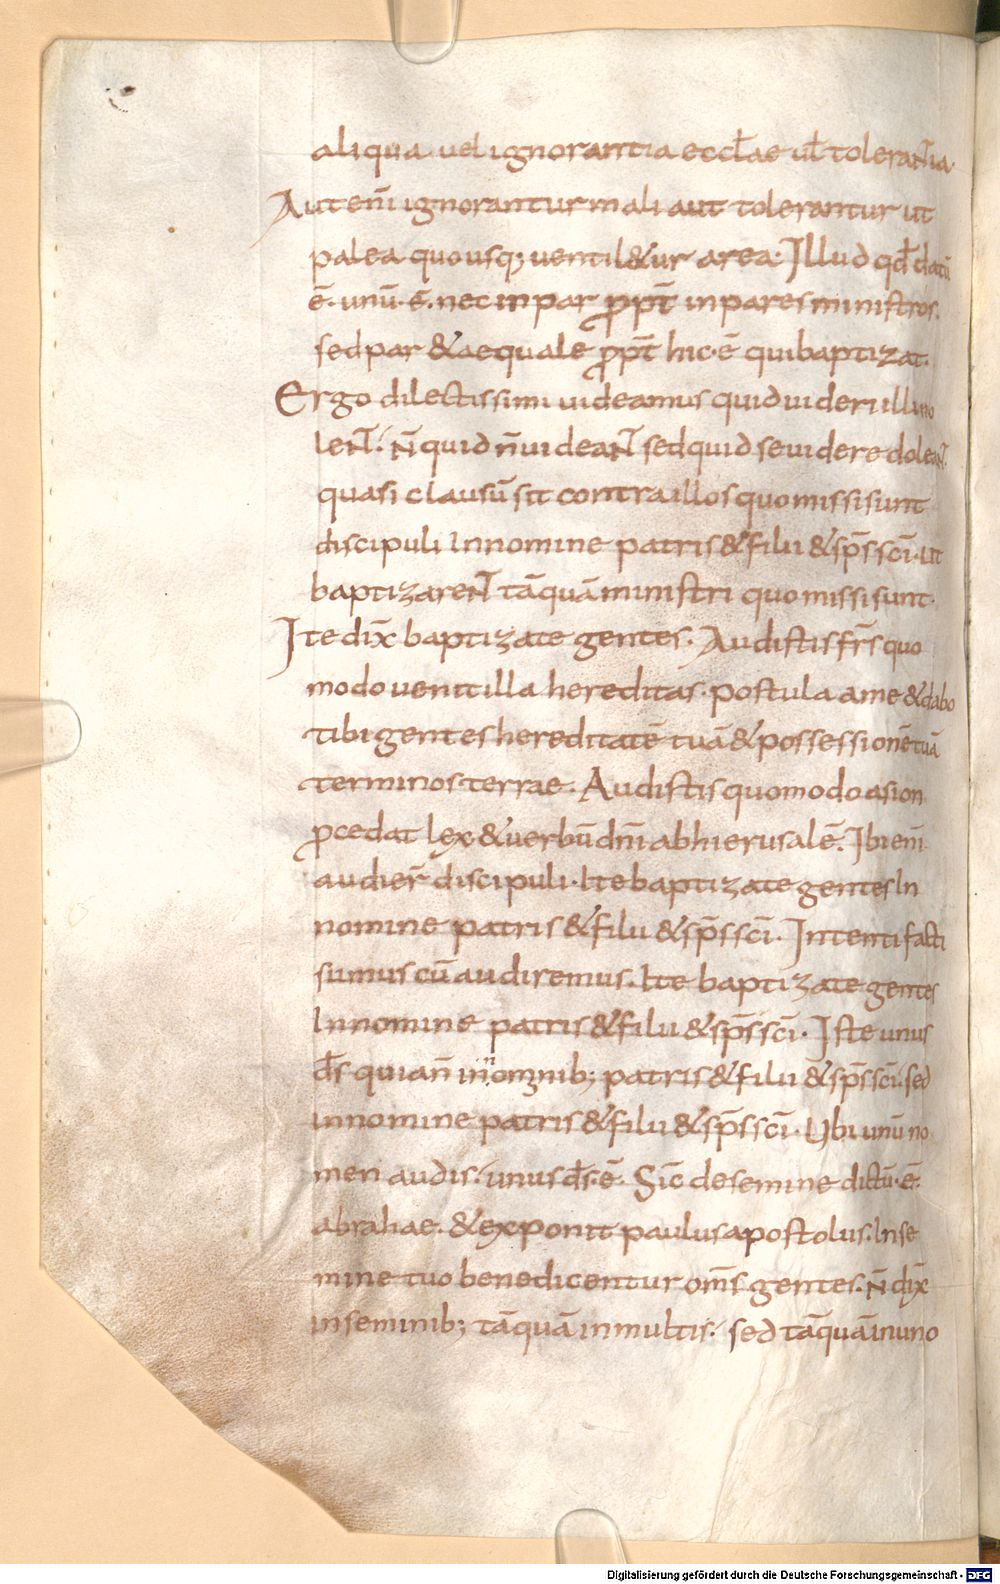 aliqua uel ignorantia eccłae uł tolerantia.
Aut eni̅ ignorantur mali aut tolerantur ut
palea quousq; uentil&ur area. Illud qđ datu̅
e̅. unu̅. e̅. nec inpar propt̅ inpares ministros.
sed par & aequale propt̅ hic. e̅ qui baptizat.
Ergo dilectissimi uideamus quid uideri illi no
lent. n̅ quid n̅ uideant sed quid se uidere doleant.
quasi clausu̅ sit contra illos quo missi sunt
discipuli In nomine patris & filii & sp̅s sc̅i. ut
baptizarent ta̅qua̅ ministri quo missi sunt.
Ite dix̅ baptizate gentes. Audistis fr̅s quo
modo uenit illa hereditas. postula a me & dabo
tibi gentes hereditate̅ tua̅ & possessione̅ tua̅
terminos terrae. Audistis quomodo a sion
ꝓcedat lex & uerbu̅ dn̅i ab hierusale̅. Ibi eni̅
audier̅ discipuli. Ite baptizate gentes In
nomine patris & filii & sp̅s sc̅i. Intenti facti
sumus cu̅ audiremus. Ite baptizate gentes
In nomine patris & filii & sp̅s sc̅i. Iste unus
d̅s quia n̅ in nominib; patris & filii & sp̅s sc̅i. sed
in nomine patris & filii & sp̅s sc̅i. Ubi unu̅ no
men audis. unus d̅s. e̅. Sic̅ de semine dictu̅. e̅.
abrahae. & exponit paulus apostolus. In se
mine tuo benedicentur om̅s gentes. n̅ dix̅
in seminib; ta̅qua̅ in multis. sed ta̅qua̅ in uno
Digitalisierung gefördert durch die Deutsche Forschungsgemeinschaft - DFG